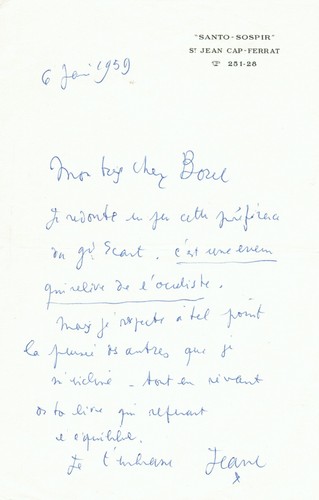 "SANTO-SOSPIR"
St JEAN CAP-FERRAT
251-28
6 1959
Mon très cher Borel
Je redoute un peu cette préférence
du gd Écart. c'est une erreur
qui relève de l'oculiste.
Mais je respecte à tel point
la pensée des autres que je
m'incline - tout en rêvant
de ta livre qui
l'équilibre.
Je t'embrasse Jean